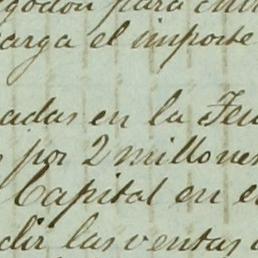 godon para
arga el importe
adas en la
por 2 millones
Capital en e
dir las ventas